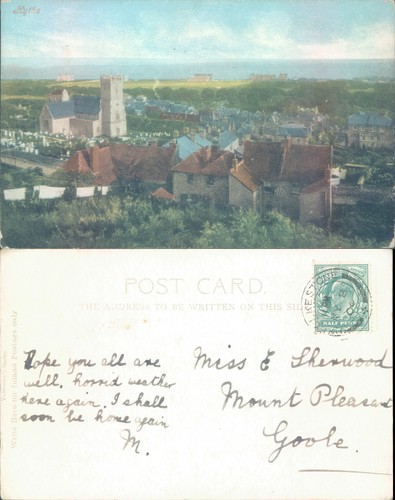 Hythe
POST CARD.
THE ADDRESS TO BE WRITTEN ON THIS SIDE
HALF PENNY
Hope you all are
well, horrid weather
here again. I shall
soon be home again
M.
Miss E Sherwood
Mount Pleasant
Goole.